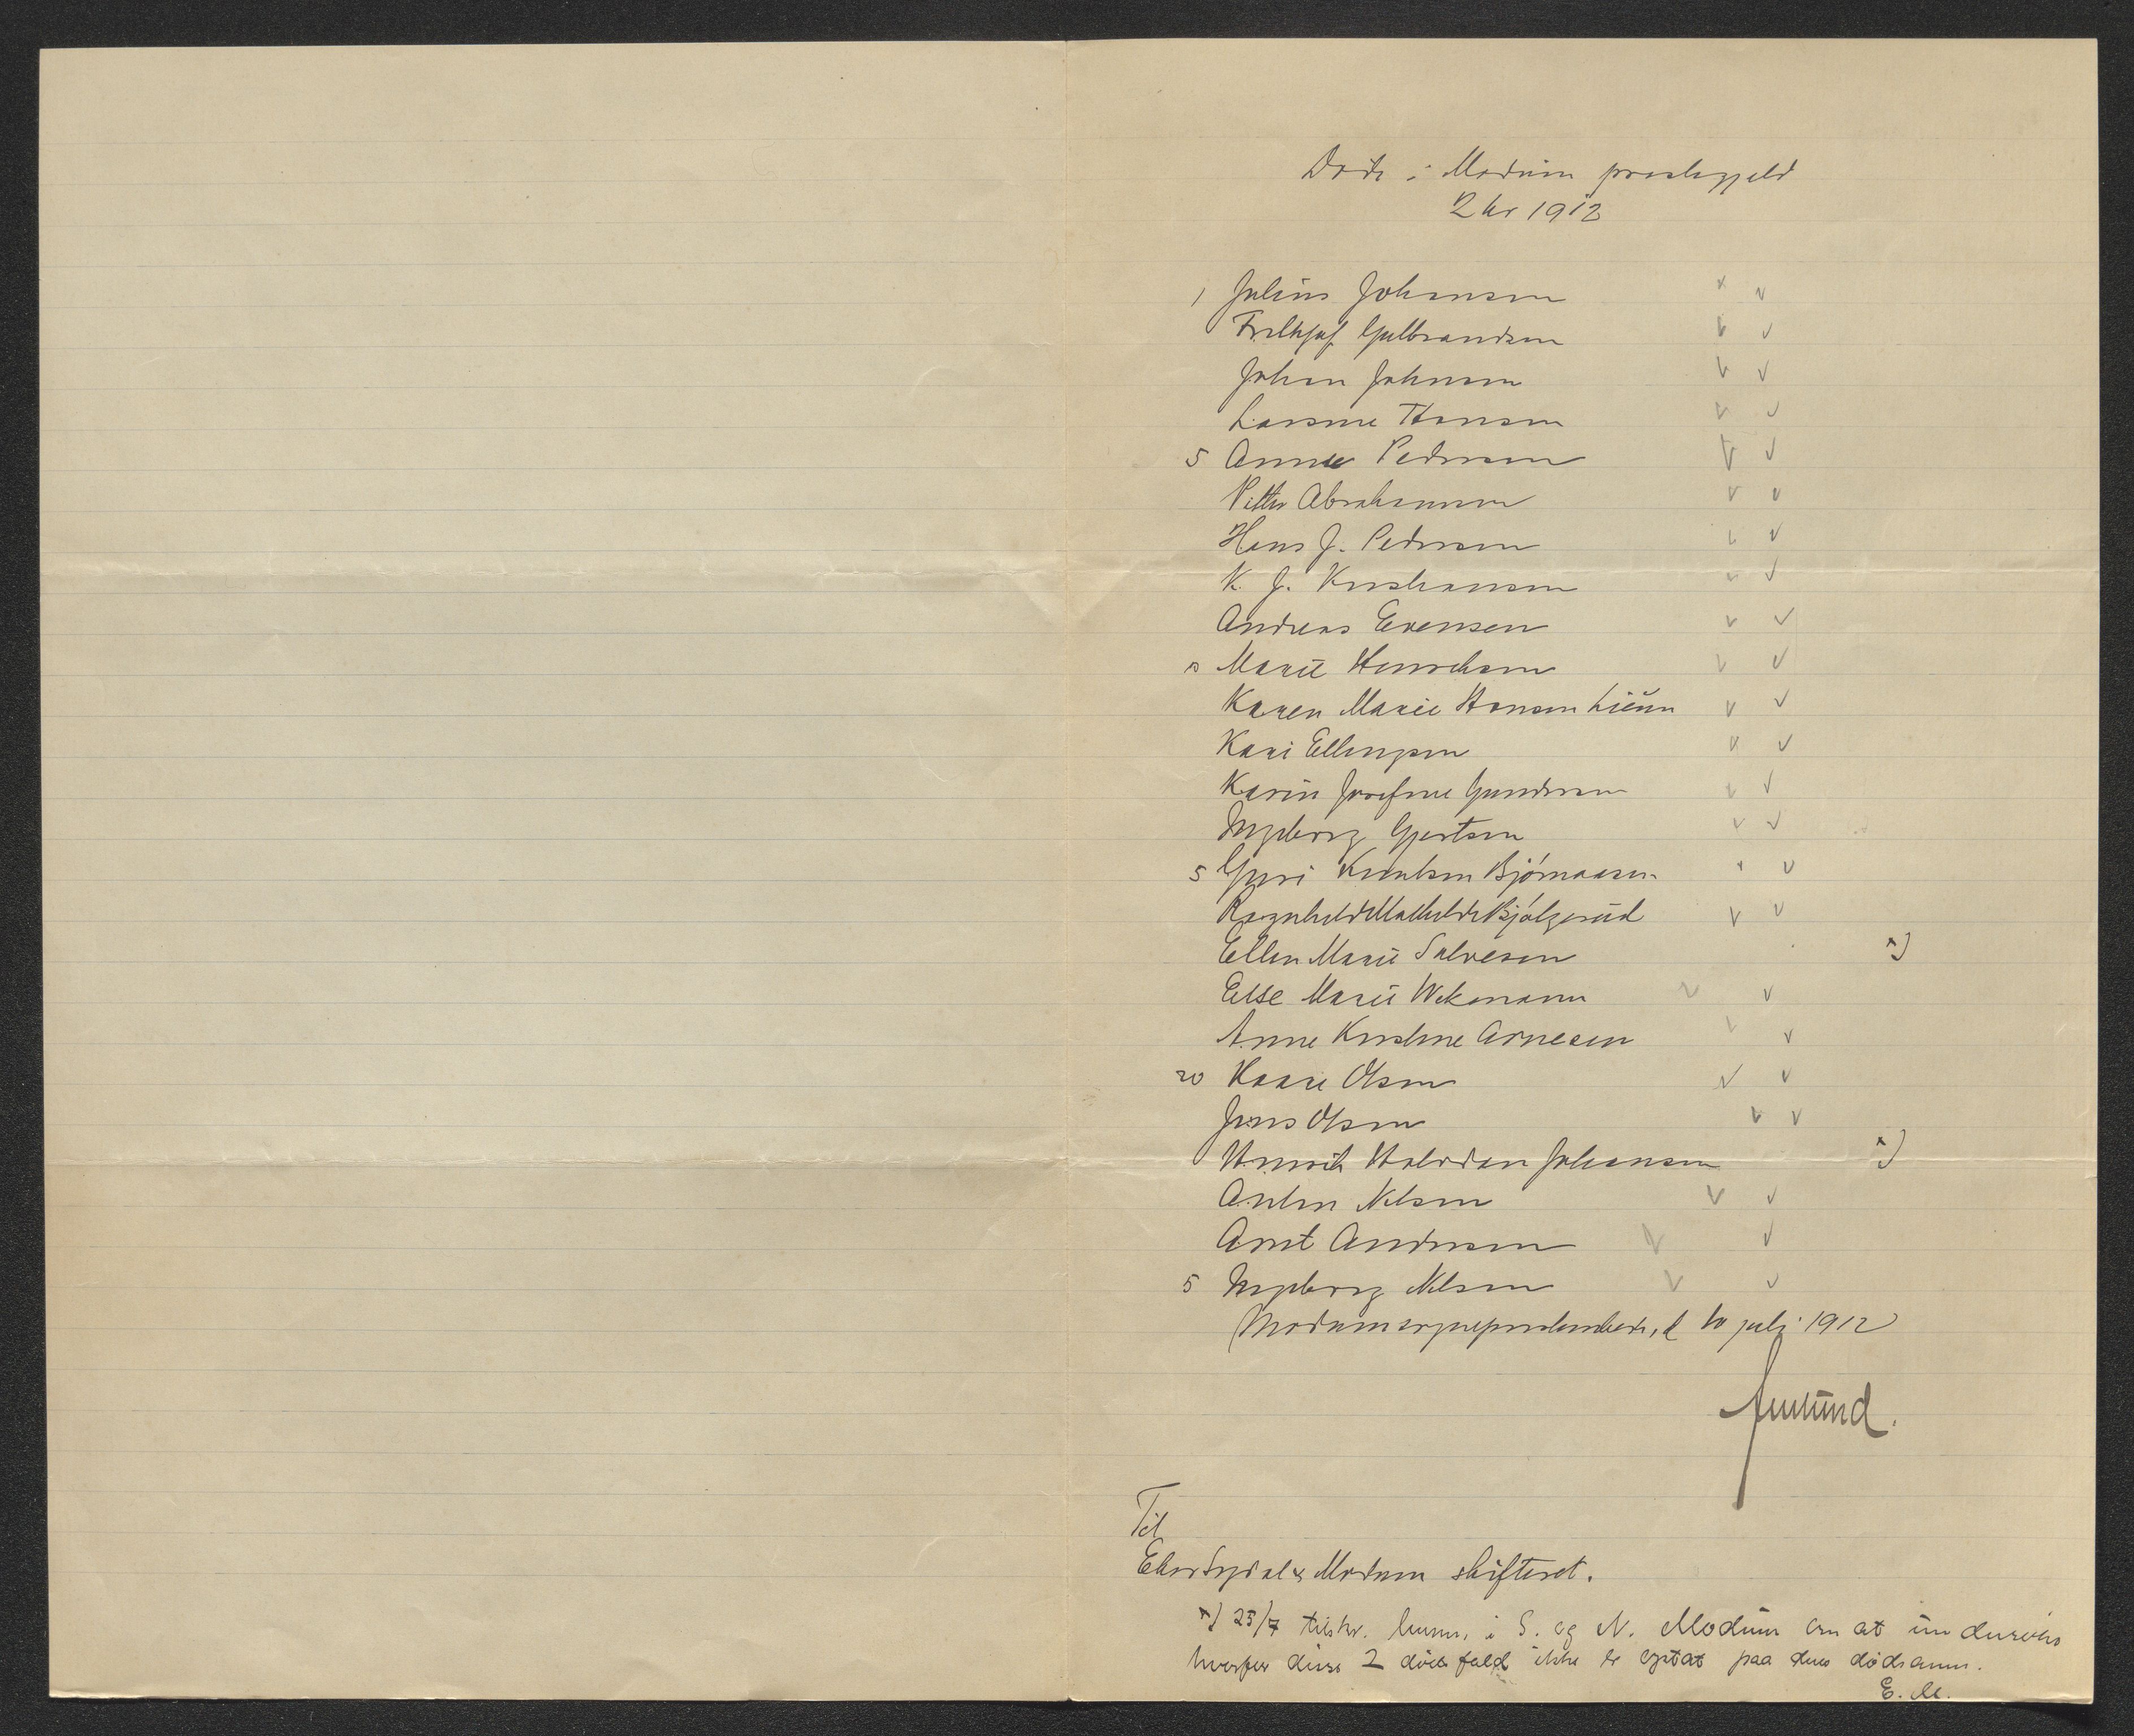 Døde i Modum prestegjeld
2 kv 1912
1 Julius Johansen
Fridtjof Gulbrandsen
Johan Johnsen
Larsine Hansen
5 Anne Pedersen
Petter Abrahamsen
Hans J. Pedersen
K. J. Kristiansen
Andreas Evensen
10 Marie Henriksen
Karen Marie Hansen Lien
Kari Ellingsen
Karin Josefine Gundersen
Ingeborg Gjertsen
5 Guri Knutsen Bjørnaasen
Ragnhild Mathilde Bjølgerud
Ellen Marie Salvesen x)
Else Marie Wekamann
Anne Kristine Arnesen
20 Kaare Olsen
Jens Olsen
Henrik Halvdan Johansen x)
Anton Nilsen
Arnt Andersen
5 Ingeborg Nilsen
Modum sogneprestembede, d 10 juli 1912
Til
Eker Sigdal & Modum skifteret.
x) 23/7 tilskr. lensm. i S. og N. Modum om at undersøke
hvorfor disse 2 dødsfald ikke er optat paa dødsanm.
E. M.